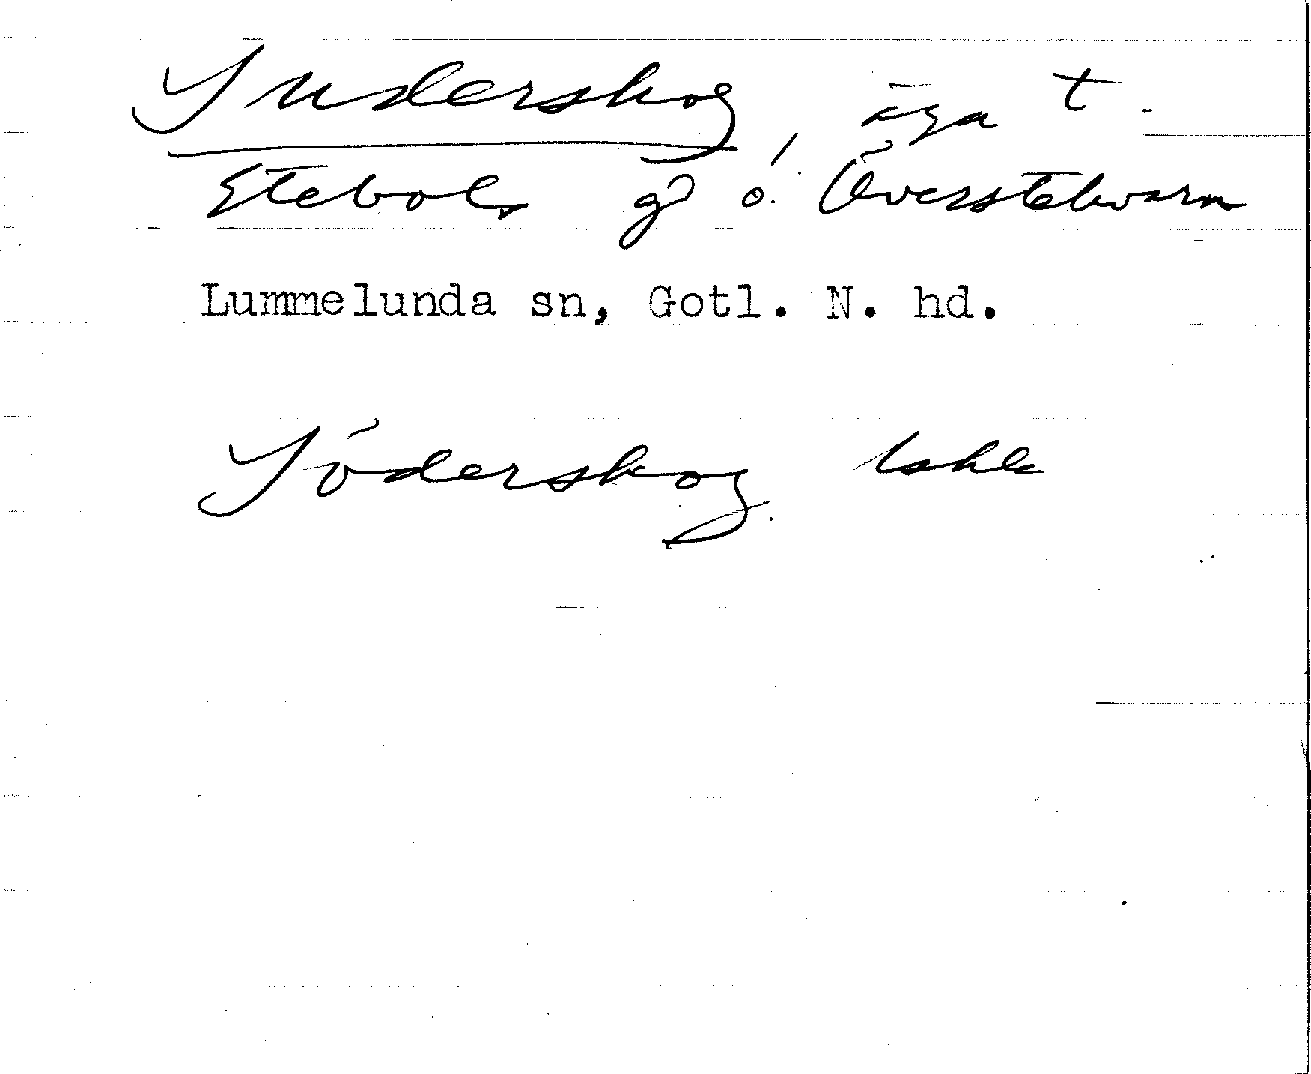 Suderskog, äga t.
Etebols gd o. Överstekvarn
Lummelunda sn, Gotl. N. hd.
Söderskog